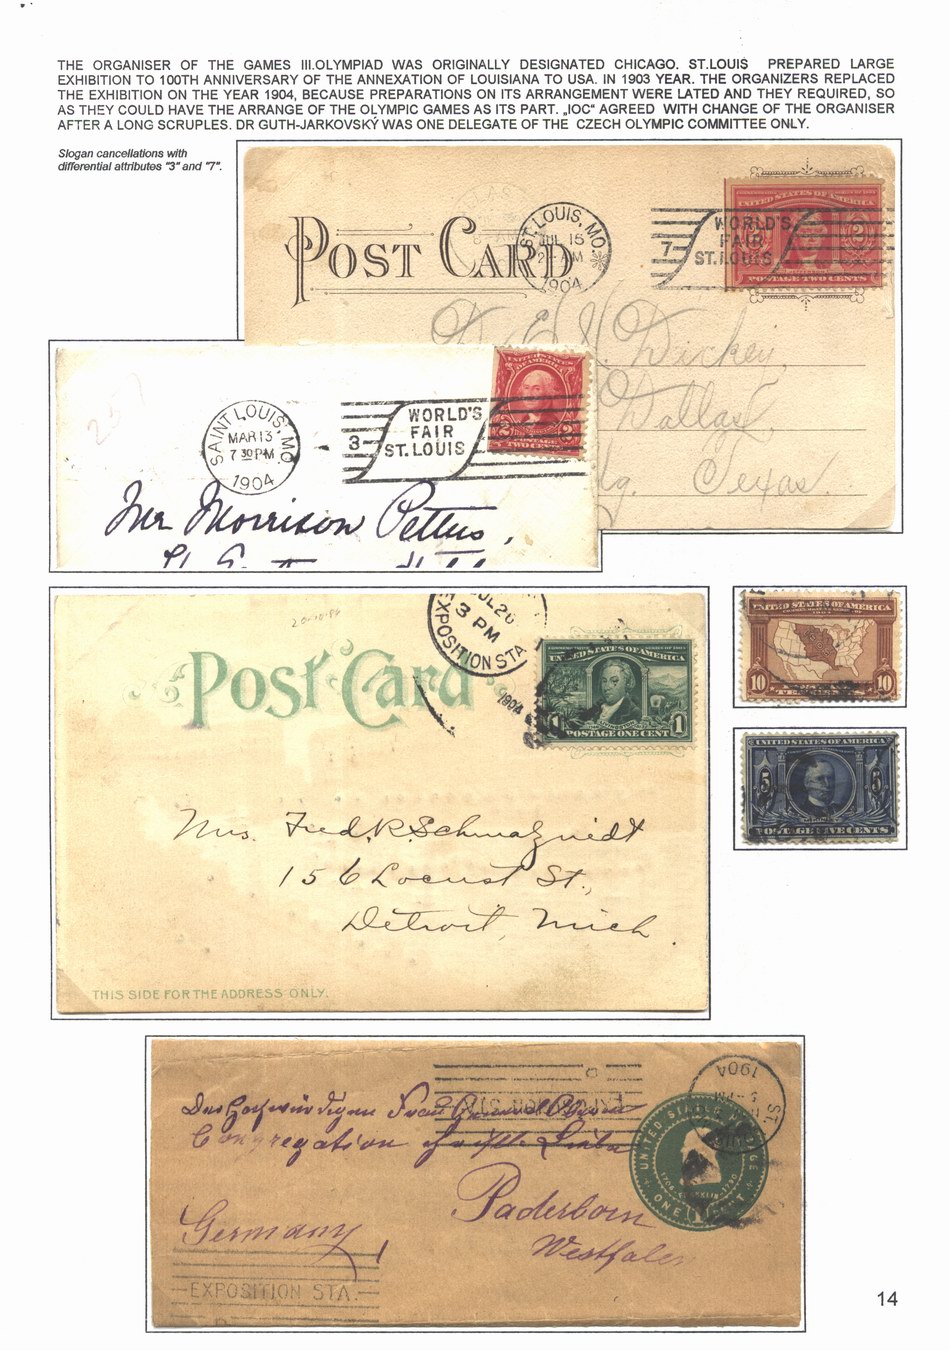 THE ORGANISER OF THE GAMES III.OLYMPIAD WAS ORIGINALLY DESIGNATED CHICAGO. ST.LOUIS PREPARED LARGE
EXHIBITION TO 100TH ANNIVERSARY OF THE ANNEXATION OF LOUISIANA TO USA. IN 1903 YEAR. THE ORGANIZERS REPLACED
THE EXHIBITION ON THE YEAR 1904, BECAUSE PREPARATIONS ON ITS ARRANGEMENT WERE LATED AND THEY REQUIRED, SO
AS THEY COULD HAVE THE ARRANGE OF THE OLYMPIC GAMES AS ITS PART. „IOC“ AGREED WITH CHANGE OF THE ORGANISER
AFTER A LONG SCRUPLES. DR GUTH-JARKOVSKÝ WAS ONE DELEGATE OF THE CZECH OLYMPIC COMMITTEE ONLY.
Slogan cancellations with
differential attributes "3" and "7".
POST CARD
ST. LOUIS, MO.
JUL 15
2 - AM
1904
7
WORLD'S
FAIR
ST. LOUIS
UNITED STATES OF AMERICA
2
POSTAGE TWO CENTS
Dickey
Dallas
Texas.
SAINT LOUIS, MO
MAR 13
7 30 PM
1904
3
WORLD'S
FAIR
ST. LOUIS
UNITED STATES
OF AMERICA
2 2
TWO CENTS
Mr Morrison Pettus,
Post Card
JUL 26
3 PM
EXPOSITION STA
1904
UNITED STATES OF AMERICA
1 1
POSTAGE ONE CENT
Mrs. Fred. R. Schmalzriedt
156 Locust St.,
Detroit, Mich.
THIS SIDE FOR THE ADDRESS ONLY.
UNITED STATES OF AMERICA
10 10
UNITED STATES OF AMERICA
5 5
POSTAGE FIVE CENTS
ST.
1904
UNITED STATES POSTAGE
ONE CENT
Congregation
Paderborn
Westfalen
Germany
EXPOSITION STA.
14